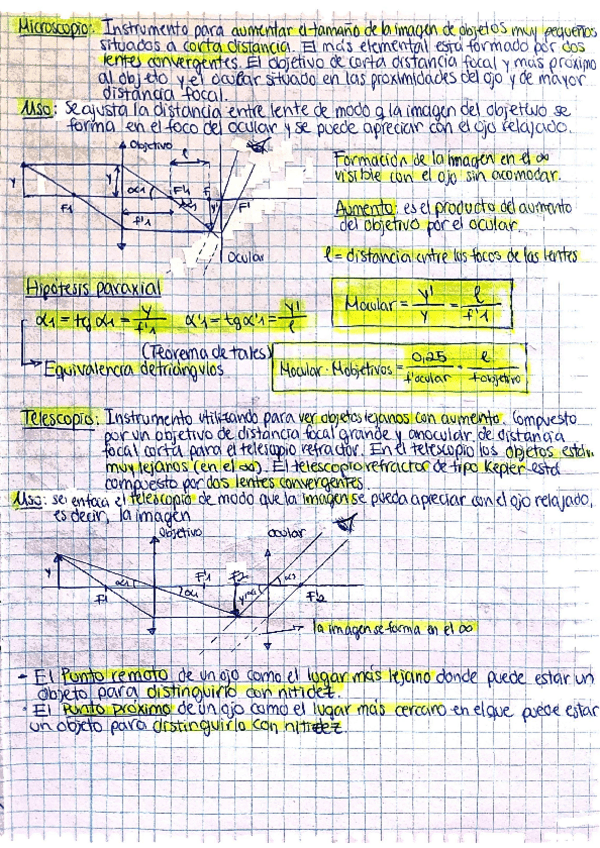 Microscopio: Instrumento para aumentar el tamaño de la imagen de objetos muy pequeños
situados a corta distancia. El más elemental está formado por dos
lentes convergentes. El objetivo de corta distancia focal y más próximo
al objeto y el ocular situado en las proximidades del ojo y de mayor
distancia focal.
Uso: se ajusta la distancia entre lente de modo q la imagen del objetivo se
forma en el foco del ocular y se puede apreciar con el ojo relajado.
Objetivo
l
y
y
α1
F'1
F1
f'1
α'1
F
y'
F'
Ocular
Formación de la imagen en el ∞
visible con el ojo sin acomodar.
Aumento: es el producto del aumento
del objetivo por el ocular.
l = distancia entre los focos de las lentes
Hipotesis paraxial
α1 = tg α1 = y/f'1 α'1 = tg α'1 = y'/l
Mocular = y'/y = l/f'1
(Teorema de tales)
Equivalencia de triángulos
Mocular · Mobjetivos = 0,25/f'ocular · l/fobjetivo
Telescopio: Instrumento utilizando para ver objetos lejanos con aumento. Compuesto
por un objetivo de distancia focal grande y un ocular de distancia
focal corta para el telescopio refractor. En el telescopio los objetos están
muy lejanos (en el ∞). El telescopio refractor de tipo Kepler está
compuesto por dos lentes convergentes.
Uso: se enfoca el telescopio de modo que la imagen se pueda apreciar con el ojo relajado,
es decir, la imagen
Objetivo
ocular
y
F1
α1
α1
F'1
F2
y'
F'2
la imagen se forma en el ∞
- El Punto remoto de un ojo como el lugar más lejano donde puede estar un
objeto para distinguirlo con nitidez.
· El Punto Próximo de un ojo como el lugar más cercano en el que puede estar
un objeto para distinguirlo con nitidez.